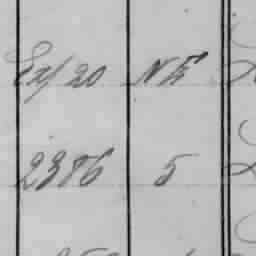 Ex/20 NE
2386 5